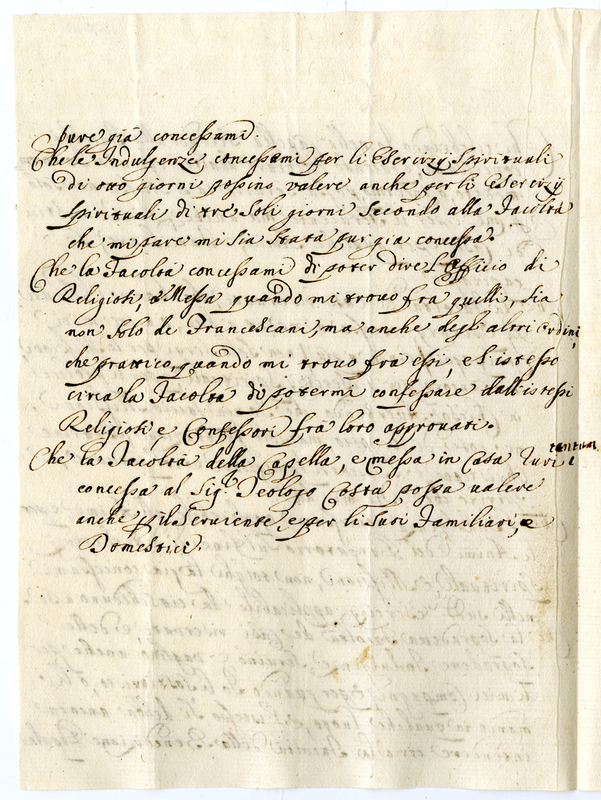 pure già concessami.
Che le Indulgenze concessemi per li Esercizij Spirituali
di otto giorni possino valere anche per li Esercizij
Spirituali di tre soli giorni secondo alla Facoltà
che mi pare mi sia stata pur già concessa.
Che la Facoltà concessami di poter dire l'Officio di
Religiosi, e Messa quando mi trovo frà quelli, sia
non solo de Francescani, ma anche degl'altri ordini,
che prattico, quando mi trovo frà essi, e l'istesso
circa la Facoltà di potermi confessare dall'istessi
Religiosi, e Confessori frà loro approvati.
Che la Facoltà della Capella, e messa in Casa tantum
concessa al Sig.r Teologo Costa possa valere
anche p il Serviente, e per li suoi Familiari, e
Domestici.